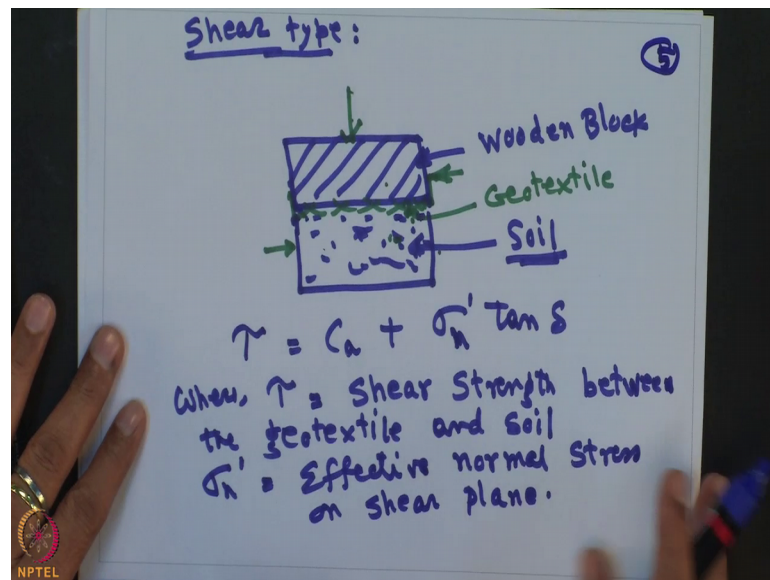 Shear type:
5
Wooden Block
Geotextile
Soil
τ = Ca + σn' tan δ
Where, τ = Shear Strength between
the geotextile and soil
σn' = Effective normal stress
on shear plane.
NPTEL